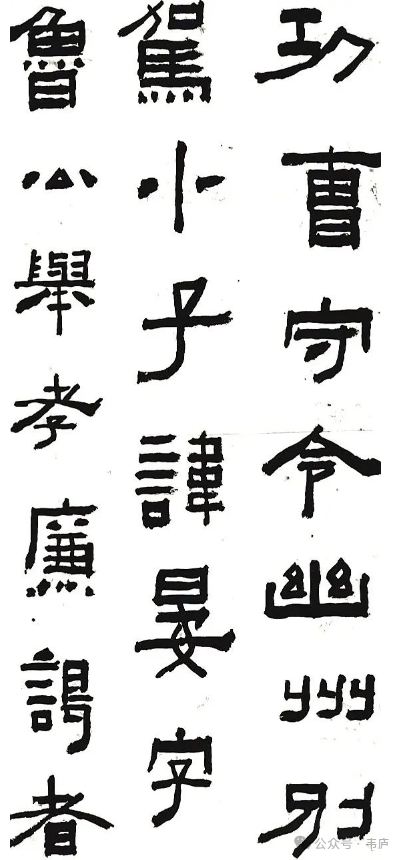 功曹守令幽州別
駕小子諱晏字
魯公舉孝廉謁者
公众号·韦庐